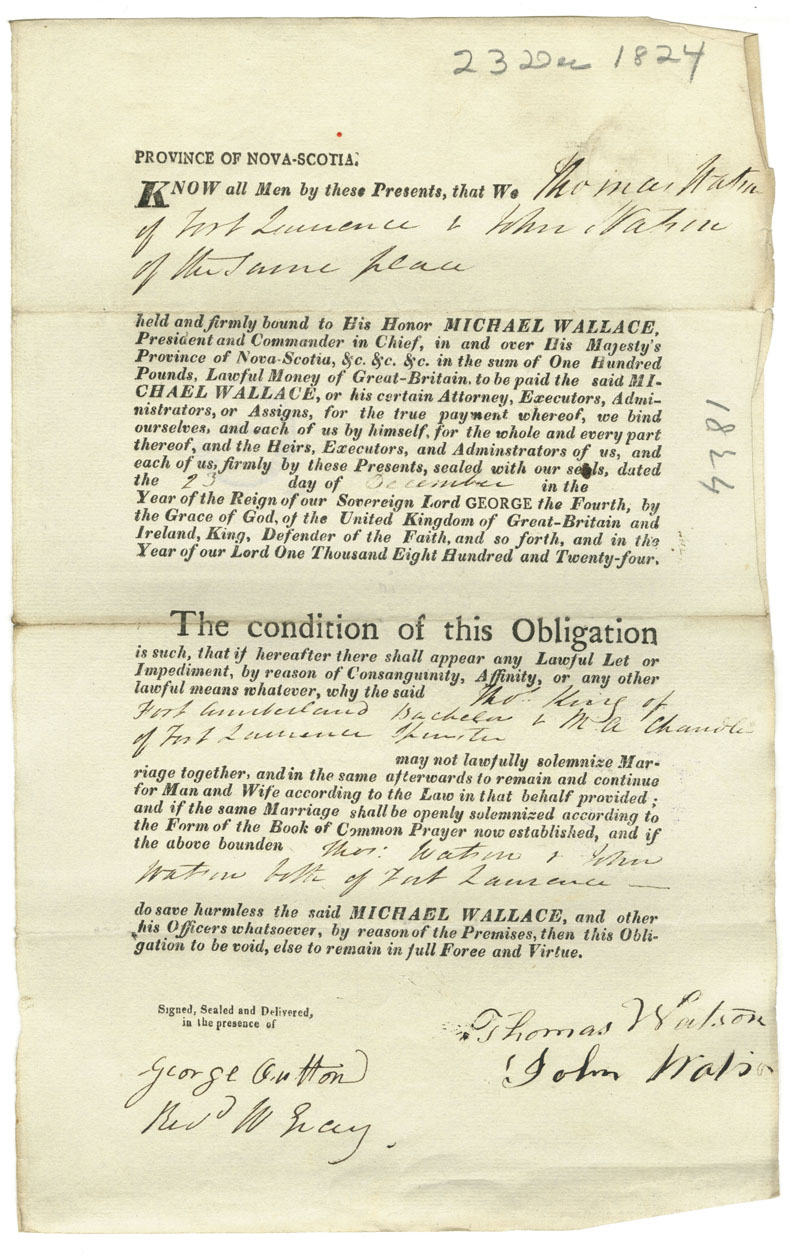 23 Dec 1824
PROVINCE OF NOVA-SCOTIA.
KNOW all Men by these Presents, that We Thomas Watson
of Fort Lawrence & John Watson
of the Same place
held and firmly bound to His Honor MICHAEL WALLACE,
President and Commander in Chief, in and over His Majesty's
Province of Nova-Scotia, &c. &c. &c. in the sum of One Hundred
Pounds, Lawful Money of Great-Britain, to be paid the said MI-
CHAEL WALLACE, or his certain Attorney, Executors, Admi-
nistrators, or Assigns, for the true payment whereof, we bind
ourselves, and each of us by himself, for the whole and every part
thereof, and the Heirs, Executors, and Adminstrators of us, and
each of us, firmly by these Presents, sealed with our seals, dated
the 23 day of December in the
Year of the Reign of our Sovereign Lord GEORGE the Fourth, by
the Grace of God, of the United Kingdom of Great-Britain and
Ireland, King, Defender of the Faith, and so forth, and in the
Year of our Lord One Thousand Eight Hundred and Twenty-four.
1834
The condition of this Obligation
is such, that if hereafter there shall appear any Lawful Let or
Impediment, by reason of Consanguinity, Affinity, or any other
lawful means whatever, why the said Thos. King of
Fort Cumberland Bachelor & M A Chandle
of Fort Lawrence Spinster
may not lawfully solemnize Mar-
riage together, and in the same afterwards to remain and continue
for Man and Wife according to the Law in that behalf provided;
and if the same Marriage shall be openly solemnized according to
the Form of the Book of Common Prayer now established, and if
the above bounden Thos: Watson & John
Watson both of Fort Lawrence —
do save harmless the said MICHAEL WALLACE, and other
his Officers whatsoever, by reason of the Premises, then this Obli-
gation to be void, else to remain in full Force and Virtue.
Signed, Sealed and Delivered,
in the presence of
Thomas Watson
John Watson
George Oulton
Revd W Gray.